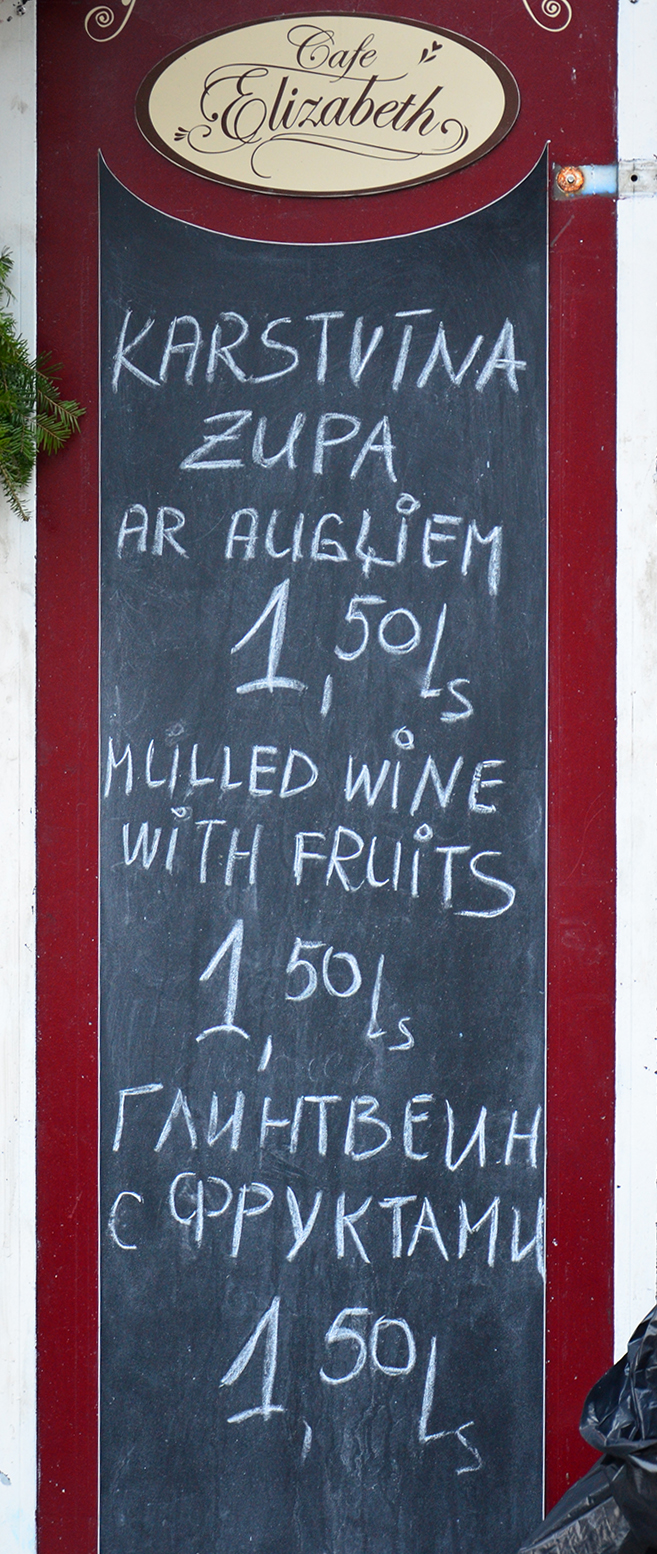 Cafe
Elizabeth
KARSTVĪNA
ZUPA
AR AUGĻIEM
1,50 Ls
MULLED WINE
WITH FRUITS
1,50 Ls
ГЛИНТВЕИН
С ФРУКТАМИ
1,50 Ls